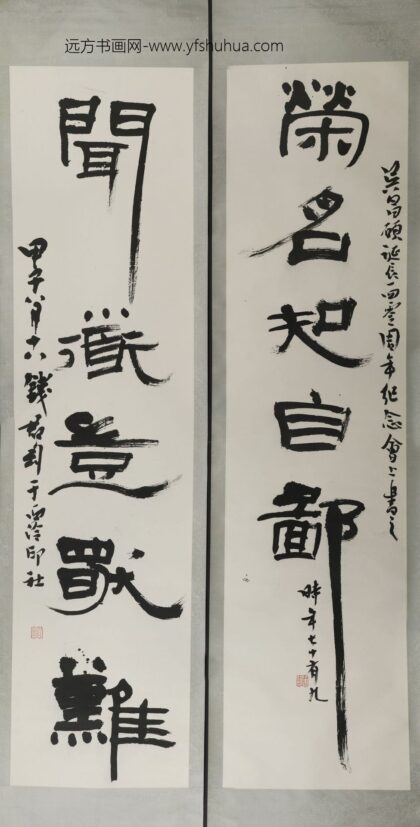 远方书画网-www.yfshuhua.com
榮名知自鄙
吳昌碩誕辰一四零周年纪念會上書之
時年七十有九
聞道豈敢難
甲子八月十六錢君匋于西泠印社